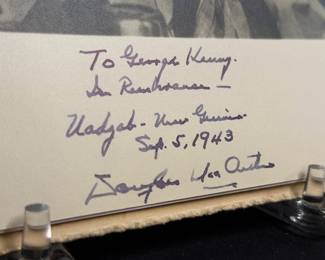 To George Kenney.
In Remembrance —
Nadzab - New Guinea
Sept. 5, 1943
Douglas MacArthur